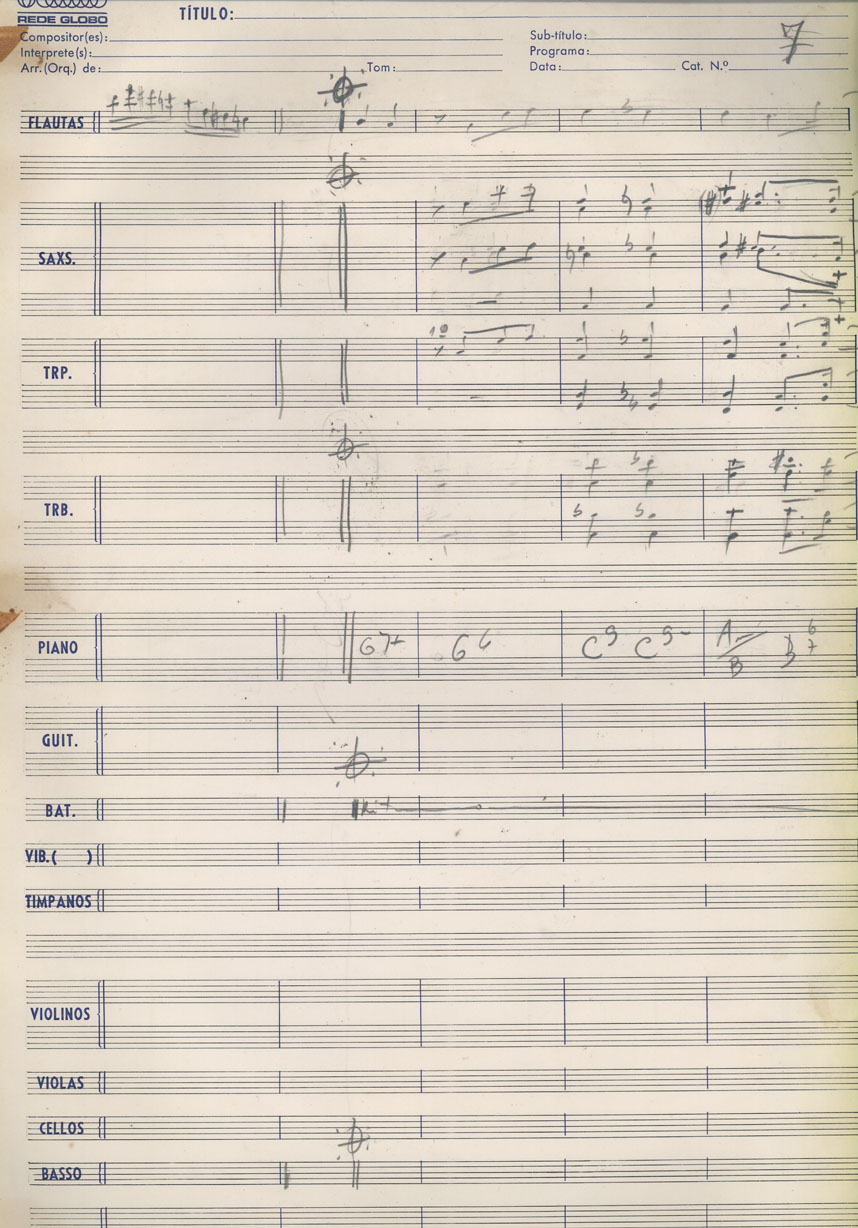 REDE GLOBO
TÍTULO:
Compositor(es):
Interprete(s):
Arr. (Orq.) de: Tom:
Sub-título:
Programa:
Data: Cat. N.º
7
FLAUTAS
SAXS.
1º
TRP.
TRB.
PIANO G7+ G6 C9 C9- Am/B B
GUIT.
BAT.
VIB.( )
TIMPANOS
VIOLINOS
VIOLAS
CELLOS
BASSO